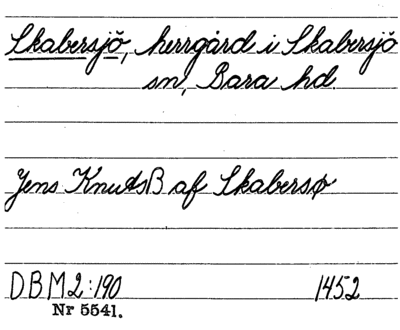 Skabersjö, herrgård i Skabersjö
sn, Bara hd.
Jens KnutsB af Skabersø
DBM2:190 1452
Nr 5541.